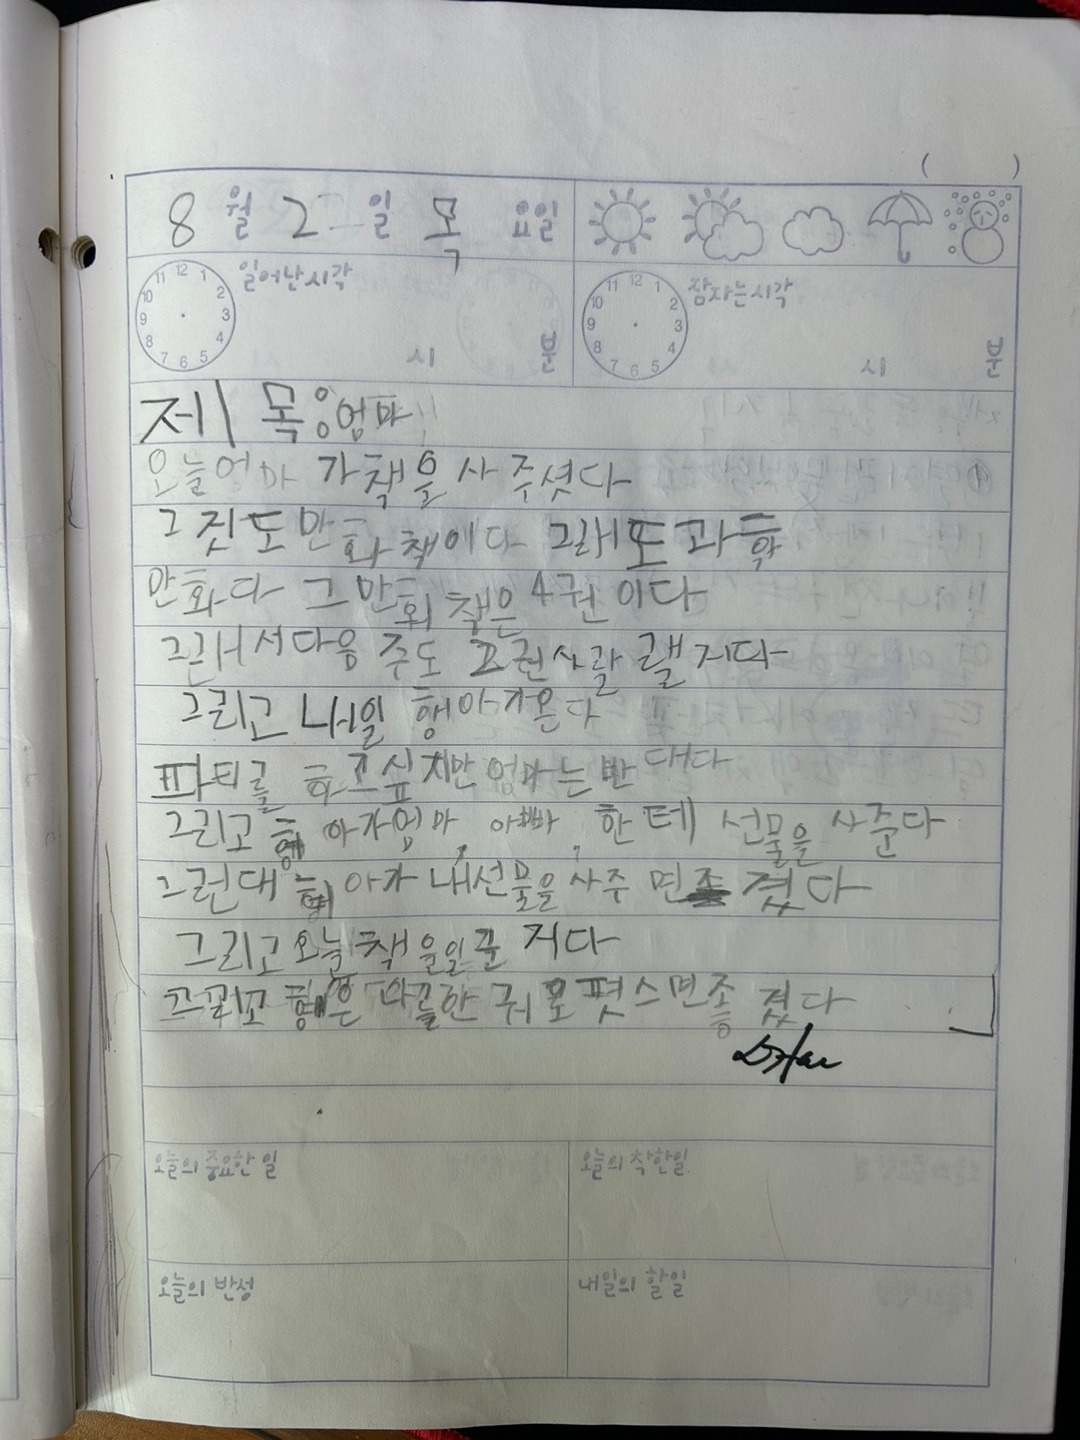 ( )
8 월 2 일 목 요일
일어난시각 시 분
잠자는시각 시 분
12 1 2 3 4 5 6 7 8 9 10 11
12 1 2 3 4 5 6 7 8 9 10 11
제 목 엄마
오늘엄마 가 책을 사 주셧다
그 짓도 만화 책이다 그래도 과학
만화다 그만화 책은 4권 이다
그래서 다음 주도 권사랄 랠 거다
그리고 내일 형아가온다
파티를 하고싶지만 엄마는반 대다
그리고 형 아가엄마, 아빠, 한테 선물을 사준다
그런대 형 아가 내선물을 사주 면좋 겠다
그리고 오늘 책 을일글 거다
그리고 형은 면좋 겠다
오늘의 중요한 일
오늘의 착한일
오늘의 반성
내일의 할일